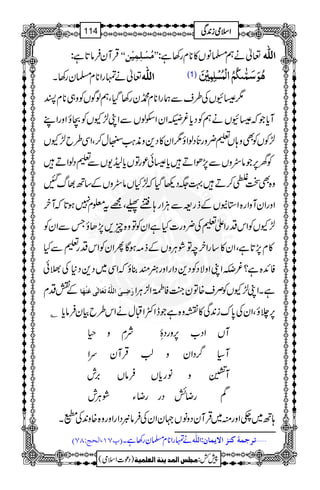 اسلامی زندگی 114
اللہ تعالیٰ نے ہم مسلمانوں کا نام رکھا ہے: "مُسْلِمِیْن" قرآن فرماتا ہے:
هُوَ سَمّٰىكُمُ الْمُسْلِمِیْنَ (۱) اللہ تعالیٰ نے تمہارا نام مسلمان رکھا۔
مگر عیسائیوں کی طرف سے ہمارا نام رکھا گیا، ہم لوگوں کو وہی نام پسند
آیا جو کہ عیسائیوں نے ہم کو دیا غرضیکہ ان اسکولوں سے اپنی لڑکیوں کو بچاؤ اور اپنے
لڑکوں کو بھی وہاں تعلیم ضرورتاً دلواؤ مگر ان کا دین و مذہب سنبھال کر، اسی طرح لڑکیوں
کو گھر پر جو ماسٹروں سے پڑھواتے ہیں یا عیسائی عورتوں یا لیڈیوں سے تعلیم دلواتے ہیں
وہ بھی سخت غلطی کرتے ہیں، بہت جگہ دیکھا گیا کہ لڑکیاں ماسٹروں کے ساتھ بھاگ گئیں
اور ان آوارہ استانیوں کے ذریعہ سے ہزارہا فتنے پھیلے، مجھے یہ نہیں معلوم ہوتا کہ آخر
لڑکیوں کو اس قدر اعلیٰ تعلیم کی ضرورت کیا ہے ان کو تو وہ چیزیں پڑھاؤ جس سے ان کو
کام پڑتا ہے، ان کا سارا خرچہ تو شوہروں کے ذمہ ہوگا پھر ان کو اس قدر تعلیم سے کیا
فائدہ ہے؟ غرضکہ اپنی اولاد کو دین دار اور ہنر مند بناؤ کہ اسی میں دین دنیا کی بھلائی
ہے۔ اپنی لڑکیوں کو صرف خاتونِ جنت فاطمۃ الزہرا رَضِیَ اللّٰہُ تَعَالٰی عَنْہَا کے نقشِ قدم
پر چلاؤ، ان کی پاک زندگی کا وہ نقشہ ہے جو ڈاکٹر اقبال نے اس طرح بیان فرمایا ؎
آں ادب پروردۂ شرم و حیا
آسیا گردان و لب قرآن سرا
آتشیں و نوریاں فرماں برش
گم رضائش در رضاءِ شوہرش
ہاتھ میں چکی اور منہ میں قرآن دونوں جہان ان کی فرمانبردار اور وہ خاوند کی مطیع۔
ترجمۂ کنز الایمان: اللہ نے تمہارا نام مسلمان رکھا ہے۔ (پ۱۷، الحج: ۷۸)
پیش کش: مجلس المدینۃ العلمیۃ (دعوت اسلامی)